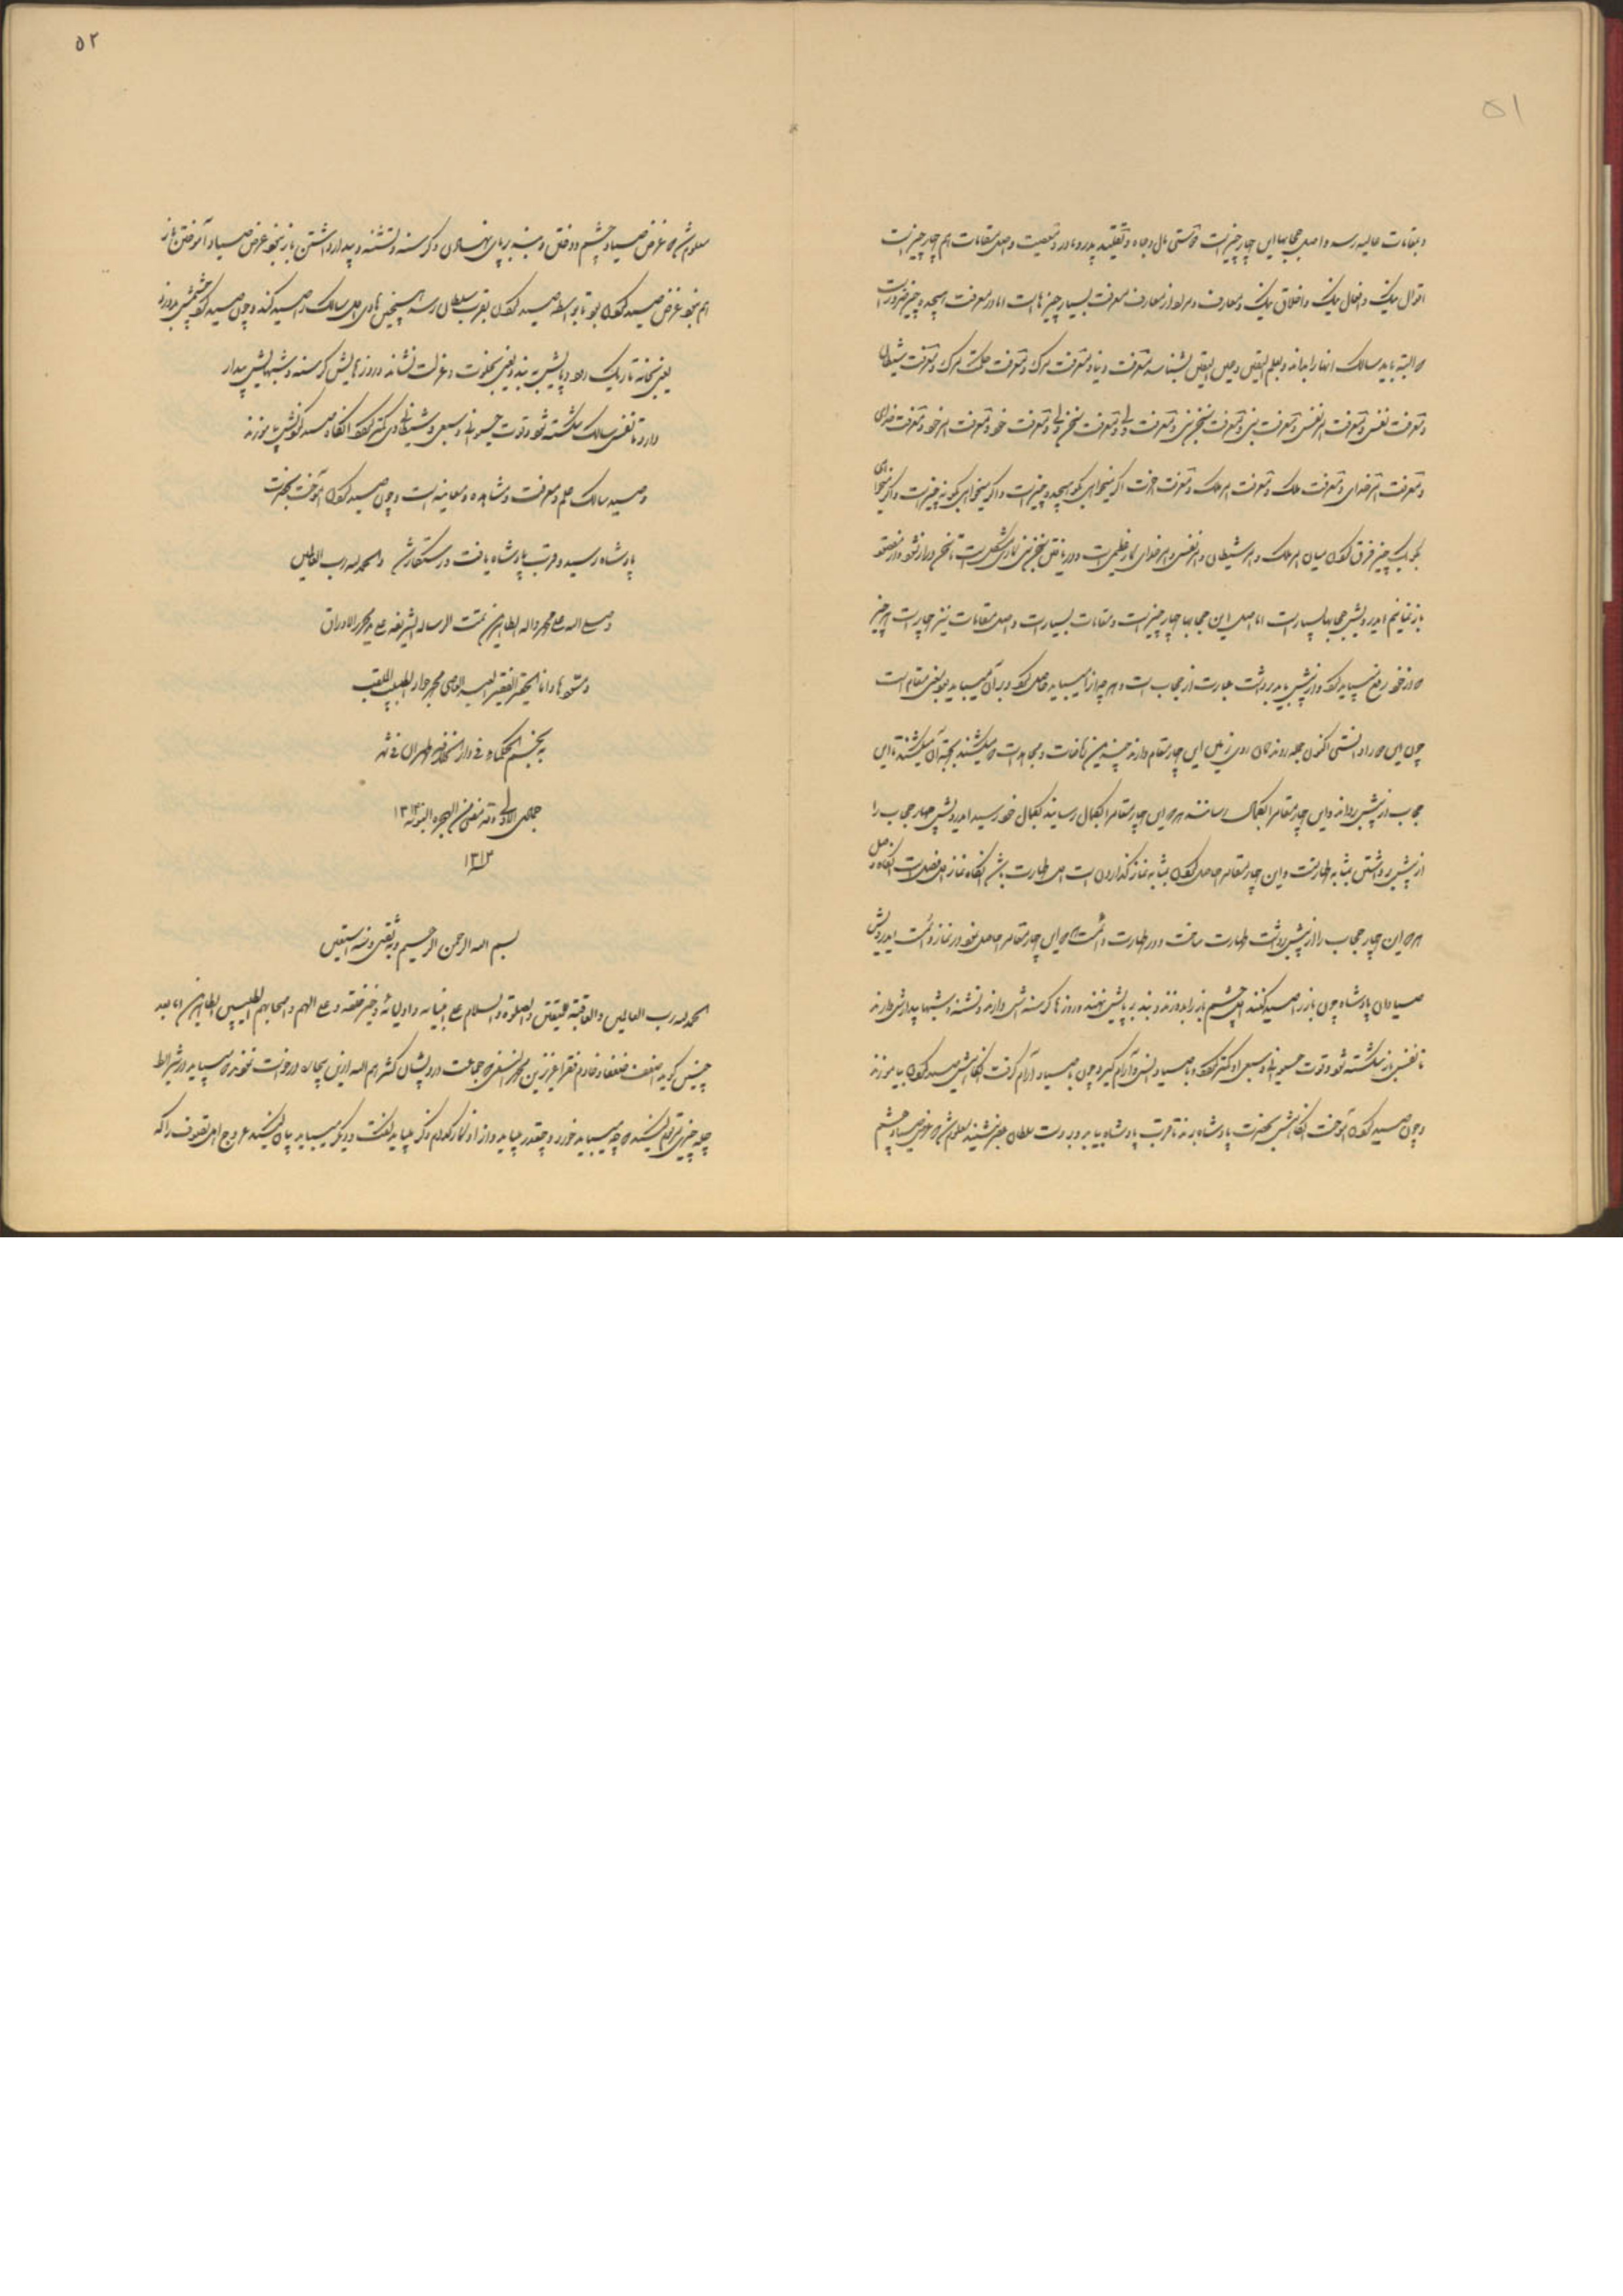 ۵۱
و بمقامات عالیه رسد و اصل حجابها این چهار چیز است دوستی مال و جاه و تقلید پدر و مادر و معصیت و اصل مقامات هم چهار چیز است
اقوال نیک و افعال نیک و اخلاق نیک و معارف و مراد از معارف معرفت بسیار چیزهاست اما در معرفت هیجده چیز ضرورت است
که البته باید سالک انها را بداند و بعلم الیقین و عین الیقین بشناسد معرفت دنیا و معرفت مرک و معرفت حکمت مرک و معرفت شیطان
و معرفت نفس و معرفت امر نفس و معرفت نبی و معرفت سخن نبی و معرفت ولی و معرفت سخن ولی و معرفت خود و معرفت امر خود و معرفت خدای
و معرفت امر خدای و معرفت ملک و معرفت امر ملک و معرفت اخرت اکر میخواهی بکو هیجده چیز است و اکر میخواهی بکو نه چیز است و اکر میخواهی
بکو یک چیز فرق کردن میان امر ملک و امر شیطان و امر نفس و امر خدای کار عظیمی است و دریافتن سخن نبی کار مشکل است تا سخن دراز نشود و از مقصود
باز نمانیم ایدرویش حجابها بسیار است اما اصل این حجابها چهار چیز است و مقامات بسیار است و اصل مقامات نیز چهار است هر چیز
که از خود رفع میباید کرد و از پیش باید برداشت عبارت از حجاب است و هر چیز را میباید حاصل کرد و بر آن میباید بود یعنی مقام است
چون این را دانستی اکنون جمله روندکان روی زمین این چهار مقام دارند چندین ریاضات و مجاهدات که میکشند بجهت آن میکشند تا این
حجاب از پیش بردارند و این چهار مقام را بکمال رسانند هر که این چهار مقام را بکمال رسانید بکمال خود رسید ایدرویش چهار حجاب را
از پیش برداشتن بمثابه طهارتست و این چهار مقام حاصل کردن بمثابه نماز کذاردن است اول طهارت باشد آنکاه نماز اول فصل است آنکاه وصل
هر که این چهار حجاب را از پیش برداشت طهارت ساخت و در طهارت دائمست و هر که این چهار مقام حاصل نمود در نماز دائمست ایدرویش
صیادان پادشاه چون باز را صید کنند اول چشم باز را بدوزند و بند بر پایش نهند و روزها کرسنه اش دارند و تشنه و شبها بیدارش دارند
تا نفس باز شکسته شود و قوت حیوانی و سبعی او کمتر کردد و با صیاد انس و آرام کیرد و چون با صیاد آرام کرفت آنکاهش صید کردن بیاموزند
و چون صید کردن آموخت آنکاهش بحضرت پادشاه برند تا قربت پادشاه بیابد و بر دست سلطان نشیند معلوم شد که غرض صیاد چشم
۵۲
معلوم شد که غرض صیاد چشم دوختن و بند بر پای نهادن و کرسنه و تشنه و بیدار داشتن باز نبود غرض صیاد آموختن باز
هم نبود غرض صید کردن بود تا بواسطه صید کردن بقرب سلطان رسد همچنین هادی اول سالک را صید کند و چون صید کرد چشمش بدوزد
یعنی بخانه تاریک برد و پایش ببندد یعنی بخلوت و عزلت نشاند و روزهایش کرسنه و شبهایش بیدار
دارد تا نفس سالک شکسته شود و قوت حیوانی و سبعی و شیطانی وی کمتر کردد آنکاه صید کردنش بیاموزند
و صید سالک علم و معرفت و مشاهده و معاینه است و چون صید کردن آموخت بحضرت
پادشاه رسید و قربت پادشاه یافت و رستکار شد والحمد لله رب العالمین
و صلی الله علی محمد و اله الطاهرین تمت الرسالة الشریفه علی ید محرر الاوراق
و مسودها و انا الحقیر الفقیر محمد جواد الطبیب الملقب
به نجم الحکماء فی دار الخلافه طهران فی شهر
جمادی الاولی و قد مضی من الهجره النبویه ۱۳۱۳
۱۳۱۳
بسم الله الرحمن الرحیم و به ثقتی و منه استعین
الحمد لله رب العالمین والعاقبة للمتقین والصلوة والسلام علی انبیائه و اولیائه و خیر خلقه و علی الهم و اصحابهم الطیبین الطاهرین اما بعد
چنین کوید اضعف ضعفا و خادم فقرا عزیز بن محمد النسفی که جماعت درویشان کثرهم الله ازین بیچاره درخواست نمودند که میباید در شرایط
چله چیزی مرقوم کنید که چه میباید خورد و چقدر میباید و از اذکار کدام ذکر میباید گفت و دیکر میباید بیان کنید عروج اهل تصوف را که